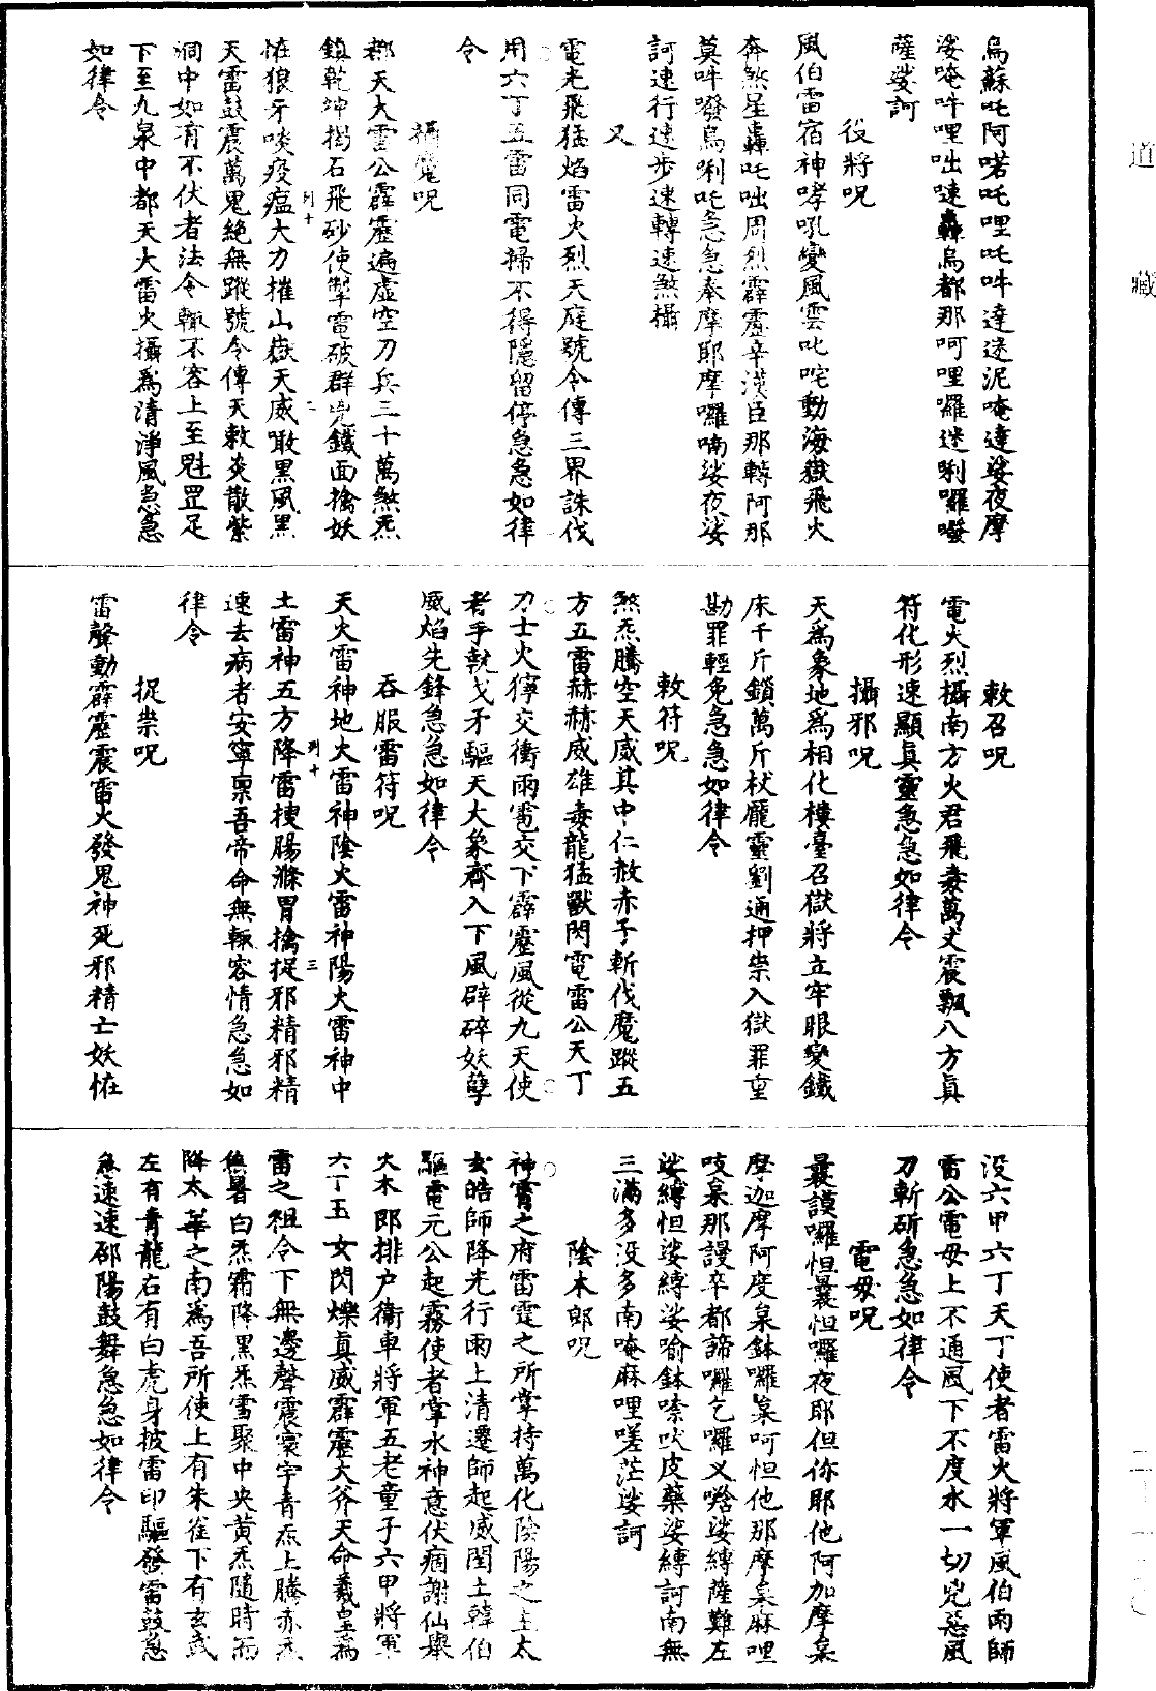 道藏
烏蘇吒阿喏吒哩吒吽達迷泥唵達娑夜摩
娑唵吽哩咄速轟烏都那呵哩囉迷唎囉囉
薩娑訶
役將呪
風伯雷宿神哮吼變風雲叱咤動海嶽飛火
奔煞星轟吒咄周烈霹靂辛漢臣那轉阿那
莫吽撥烏唎吒急急奉摩耶摩囉喃娑夜娑
訶速行速步速轉速煞攝
又
電光飛猛焰雷火烈天庭號令傳三界誅伐
用六丁五雷同電掃不得隱留停急急如律
令
攝魔呪
都天大雷公霹靂遍虛空刀兵三十萬煞炁
鎮乾坤揭石飛砂使掣電破群兇鐵面擒妖
怪狼牙啖疫瘟大力摧山嶽天威噉黑風黑
天雷鼓震萬鬼絕無蹤號令傳天敕炎散紫
洞中如有不伏者法令輒不容上至魁罡足
下至九泉中都天大雷火攝為清淨風急急
如律令
敕召呪
電火烈攝南方火君飛毒萬丈震飄八方真
符化形速顯真靈急急如律令
攝邪呪
天為象地為相化樓臺召獄將立牢眼變鐵
床千斤鎖萬斤杖龐靈劉通押祟入獄罪重
勘罪輕免急急如律令
敕符呪
煞炁騰空天威其中仁赦赤子斬伐魔蹤五
方五雷赫赫威雄毒龍猛獸閃電雷公天丁
力士火獰交衝雨雹交下霹靂風從九天使
者手執戈矛驅天大象齊入下風辟碎妖孽
風焰先鋒急急如律令
吞服雷符呪
天火雷神地火雷神陰火雷神陽火雷神中
土雷神五方降雷揀腸滌胃擒捉邪精邪精
速去病者安寧稟吾帝命無輒容情急急如
律令
捉祟呪
雷聲動霹靂震雷火發鬼神死邪精亡妖怪
沒六甲六丁天丁使者雷火將軍風伯雨師
雷公電母上不通風下不度水一切兇惡風
刀斬斫急急如律令
電母呪
曩謨囉怛曩怛囉夜耶但你耶他阿加摩枲
摩迦摩阿度枲鉢囉枲呵怛他那摩枲麻哩
吱枲那謾卒都諦囉乞囉叉唅娑縛薩難左
娑縛怛娑縛娑喻鉢嗏吠皮藥娑縛訶南無
三滿多没多南唵麻哩嗟茫娑訶
陰木郎呪
神霄之府雷霆之所掌持萬化陰陽之主太
玄皓師降光行雨上清遷師起威閏土韓伯
驅電元公起霧使者掌水神意伏痼謝仙舉
火木郎排户衛車將軍五老童子六甲將軍
六丁玉女閃爍真威霹靂大斧天命羲皇為
雷之祖令下無邊聲震寰宇青炁上騰赤炁
焦暑白炁霜降黑炁雪聚中央黃炁隨時而
降太華之南為吾所使上有朱雀下有玄武
左有青龍右有白虎身披雷印驅發雷鼓急
急速速邵陽鼓舞急急如律令